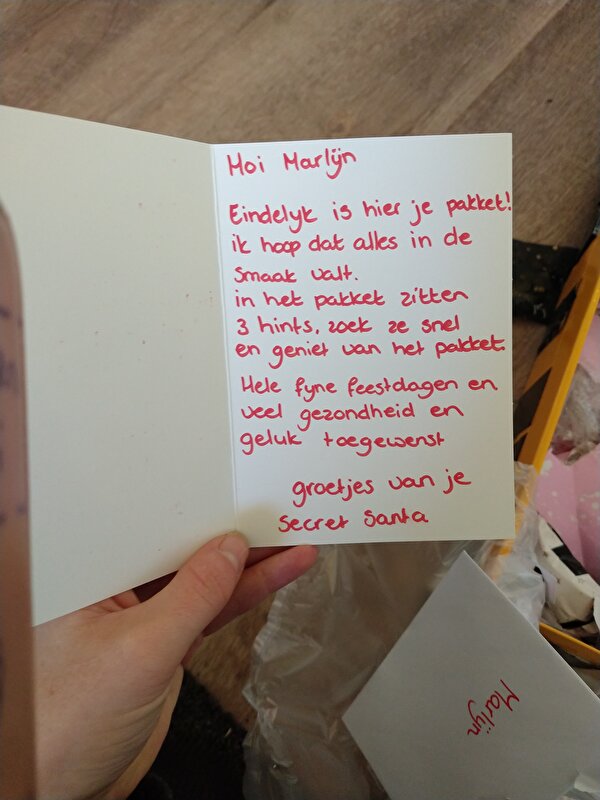 Hoi Marlijn
Eindelyk is hier je pakket!
ik hoop dat alles in de
smaak valt.
in het pakket zitten
3 hints, zoek ze snel
en geniet van het pakket.
Hele fyne feestdagen en
veel gezondheid en
geluk toegewenst
groetjes van je
Secret Santa
Marlijn